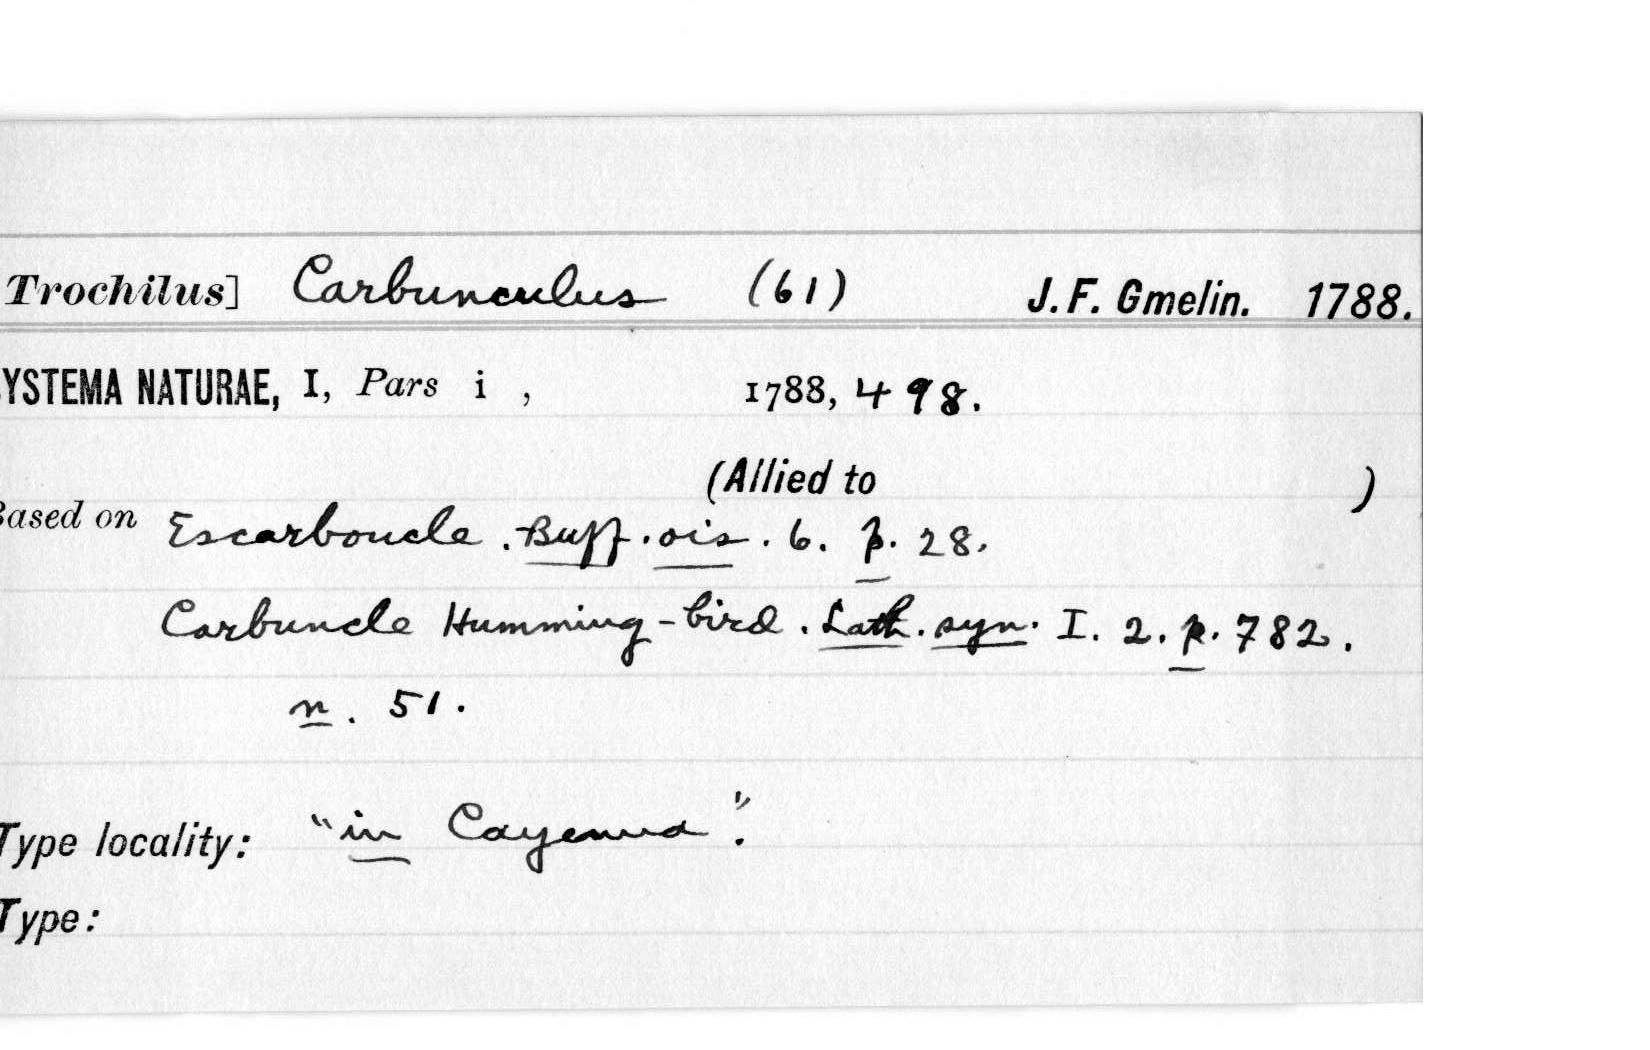 Trochilus] Carbunculus (61) J. F. Gmelin. 1788.
YSTEMA NATURAE, I, Pars i , 1788, 498.
(Allied to )
Based on Escarboucle . Buff . ois . 6. p. 28.
Carbuncle Humming-bird . Lath . syn . I. 2. p. 782.
n . 51 .
Type locality: "in Cayenna".
Type: